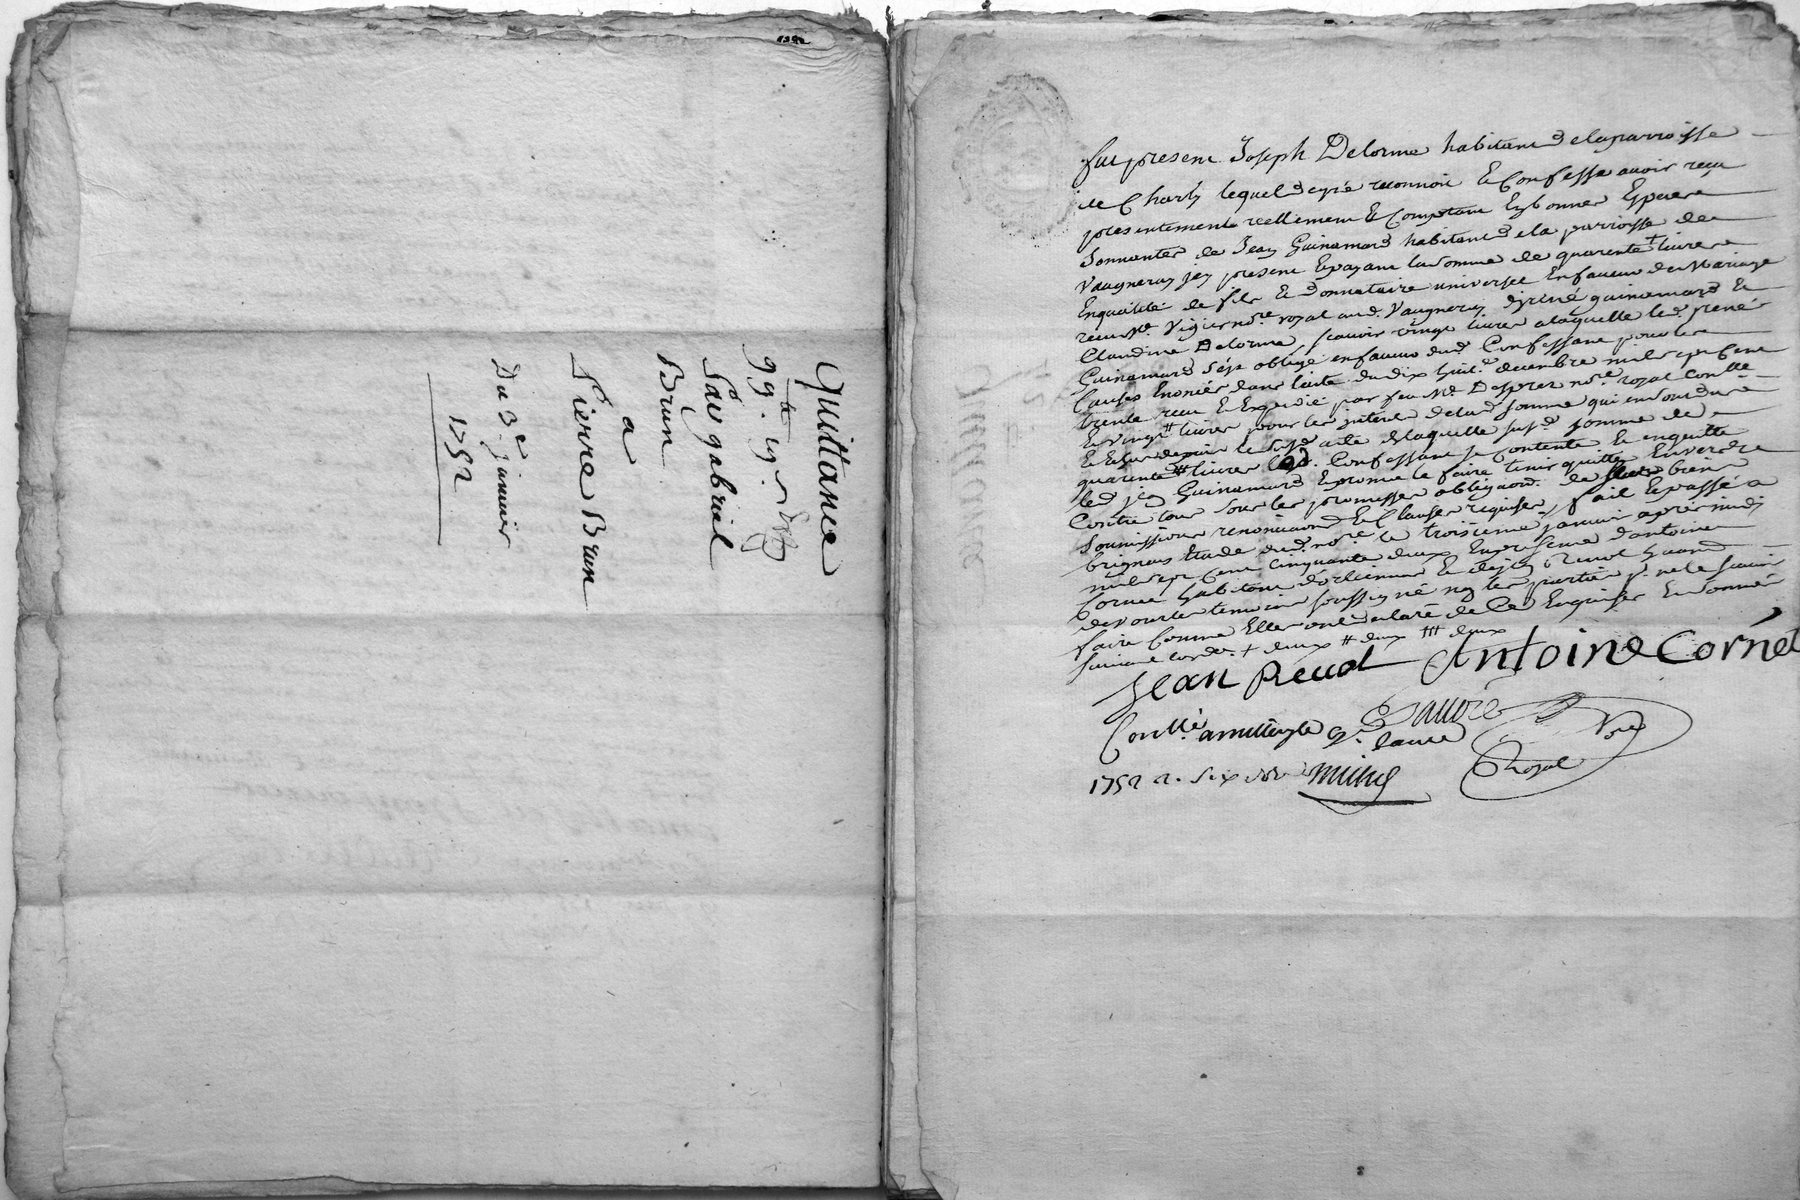 Quittance
Par gabriel
Brun
a
Pierre Brun
Du 3.e janvier
1752
fut present Joseph Delorme habitant de la parroisse
de Charly lequel de gré reconnoit et Confesse avoir reçu
presentement reellement et Comptant En bonnes Especes
Sonnantes de Jean Guinamard habitant de la parroisse de
Vaugneray icy present Et payant la somme de quarente + livres
En qualité de fils Et donnataire universel En faveur de Mariage
reçu Me Vigier nore royal aud. Vaugneray guinamard Et
Claudine Delorme, scavoir vingt livres a laquelle led. René
Guinamard s'est obligé en faveur dud. Confessant pour les
Causes Enoncés dans l'acte du dix huit.e decembre mil sept Cent
trente reçu Et Expedié par feu Me Desprez nore royal
Et vingt # livres pour les interets de lad. somme qui en sont
Et depuis le susd. acte de laquelle susd. somme de
quarente ## livres led. Confessant se contente Et en quitte
led. jean Guinamard Et promet le faire tenir quitte Envers Et
Contre tous sous les promesses obligaons. de biens
Soumissions renonciaons Et Clauses requises, fait Et passé a
brignais Etude dud. nore le troisieme janvier apres midi
mil sept Cent cinquante deux En presence d'antoine
Cornet habitant d'orlienas Et de jean Revol
de Vourles temoins soussignés non les parties pr. ne le scavoir
faire Comme Elles ont declaré de Ce Enquises Et sommés
suivant l'orde. + deux # deux ### deux
Jean Revol Antoine Cornet
Conllé a millery le ge. janvier
Nore
Royal
1752 r. six